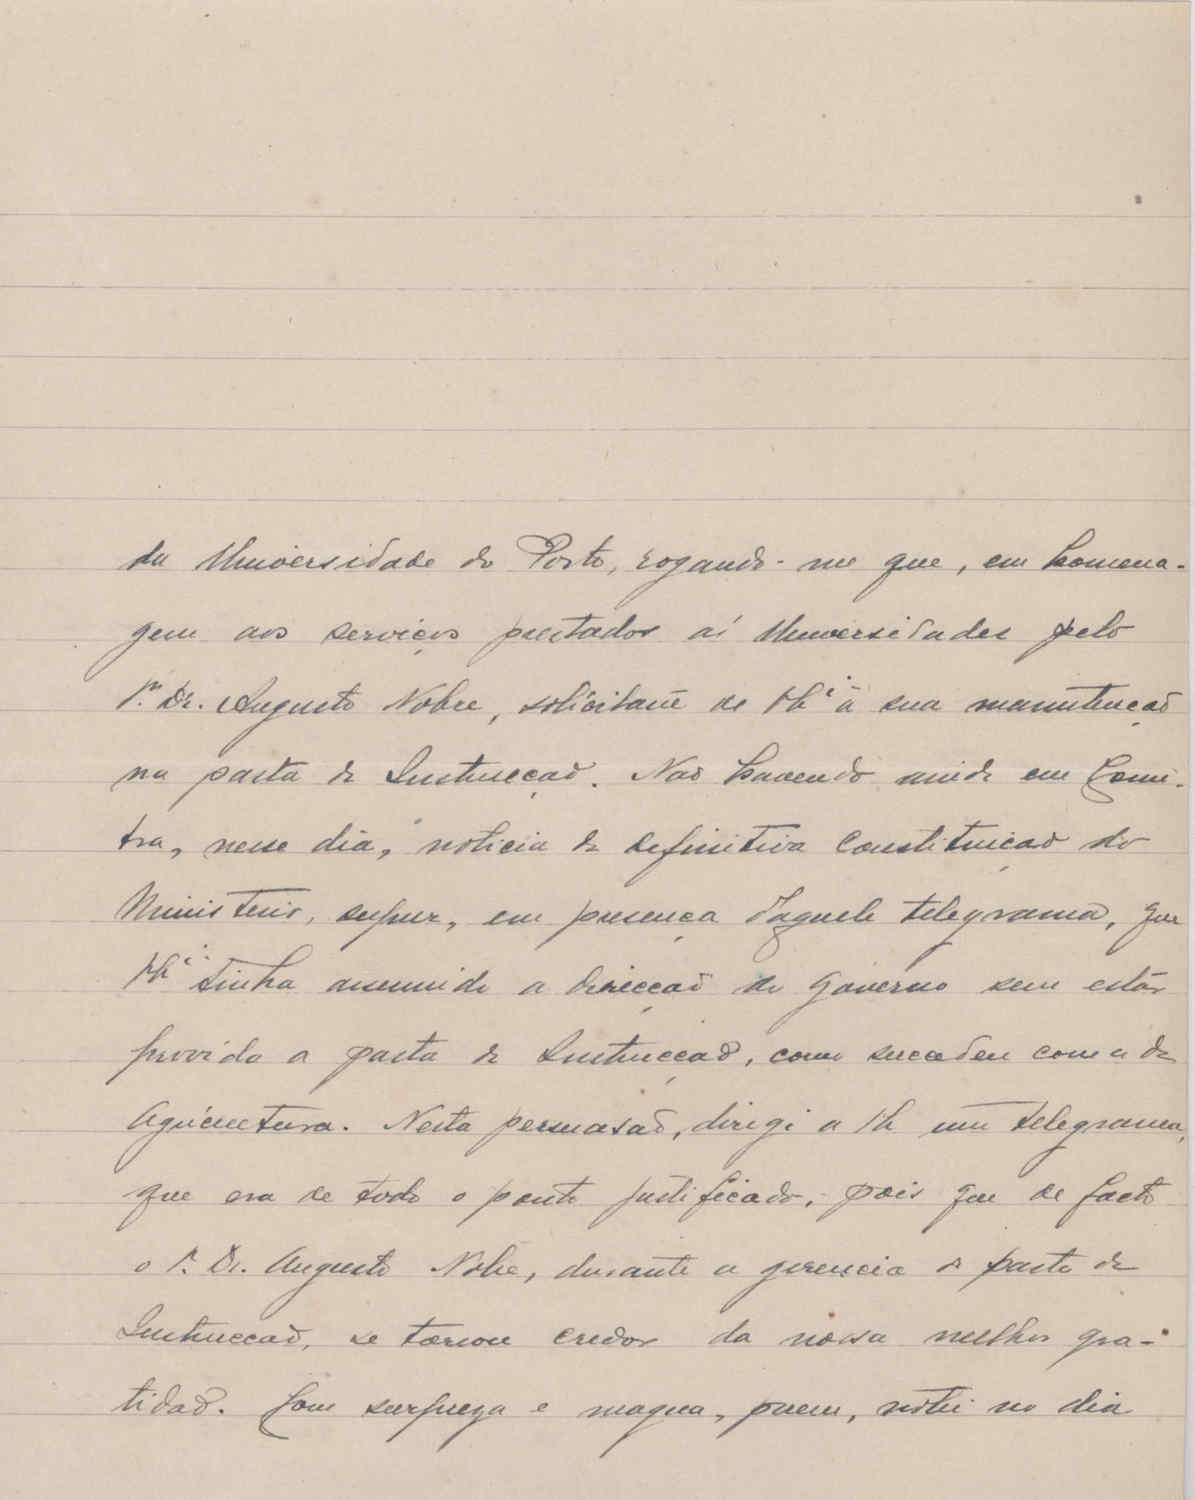 da Universidade do Porto, rogando-me que, em homena-
gem aos serviços prestados ás Universidades pelo
Sr. Dr. Augusto Nobre, solicitasse de V. Ex.ª a sua manutenção
na pasta da Instrucção. Não havendo ainda em Coim-
bra, nesse dia, noticia da definitiva Constituição do
Ministerio, supuz, em presença daquele telegrama, que
V. Ex.ª tinha assumido a direcção do Governo sem estar
provida a pasta da Instrucção, como sucedeu com a da
Agricultura. Nesta persuasão, dirigi a V. Ex.ª um telegrama,
que era de todo o ponto justificado, pois que de facto
o Sr. Dr. Augusto Nobre, durante a gerencia da pasta da
Instrucção, se tornou credor da nossa melhor gra-
tidão. Com surpreza e magua, porem, notei no dia